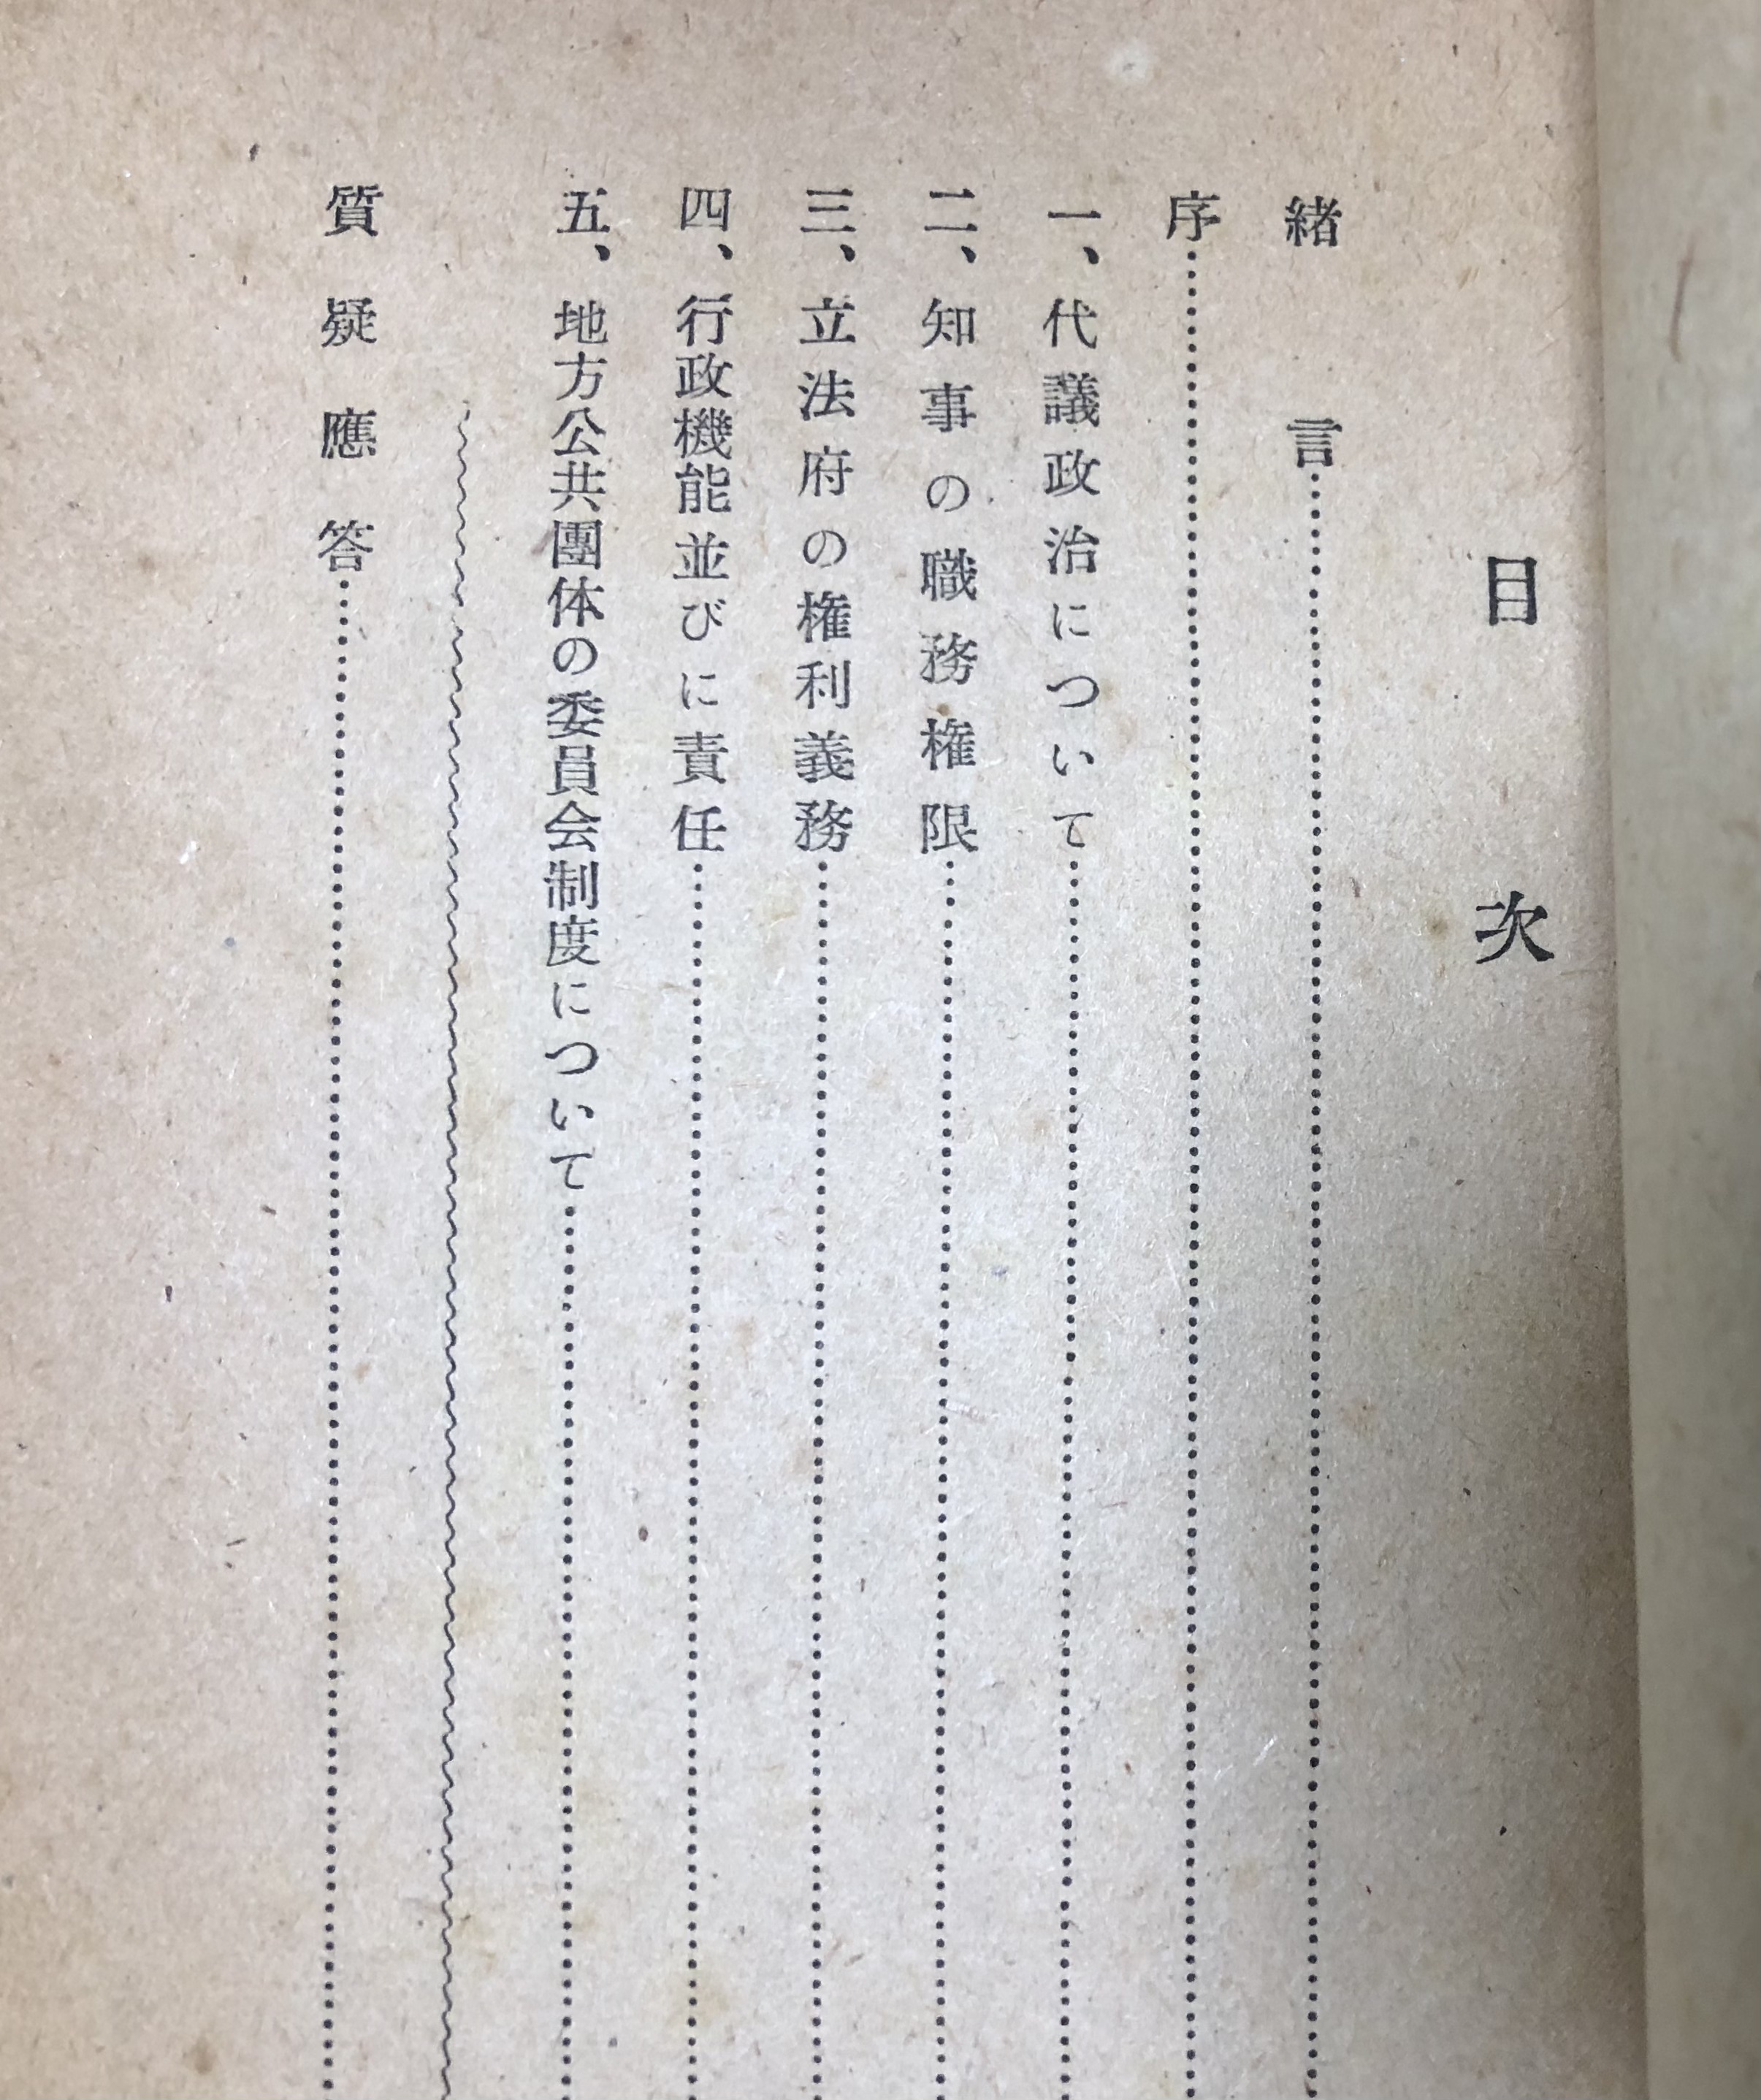 目次
緒言
序
一、代議政治について
二、知事の職務権限
三、立法府の権利義務
四、行政機能並びに責任
五、地方公共團体の委員会制度について
質疑應答